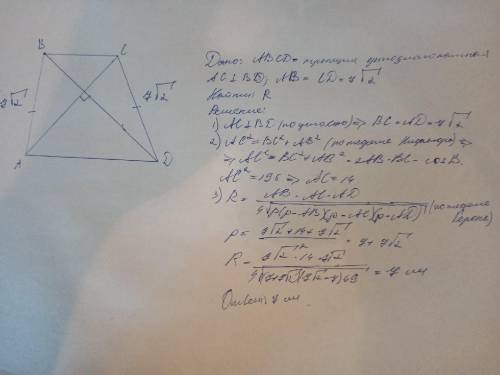 B C
7√2 7√2
A D
Дано: ABCD - трапеция
AC ⊥ BD; AB = CD = 7√2
Найти: R
Решение:
1) AC ⊥ BD (по условию) => BC = AD = 7√2
2) AC² = BC² + AB² (по теореме Пифагора) =>
=> AC² = BC² + AB² - 2AB · BC · cos B.
AC² = 196 => AC = 14
3) R = AB · AC · AD / 4√p(p-AB)(p-AC)(p-AD) (по теореме Герона)
p = 7√2 + 14 + 7√2 = 7 + 7√2
R = 7√2 · 14 · 7√2 = 7 см
Ответ: 7 см.